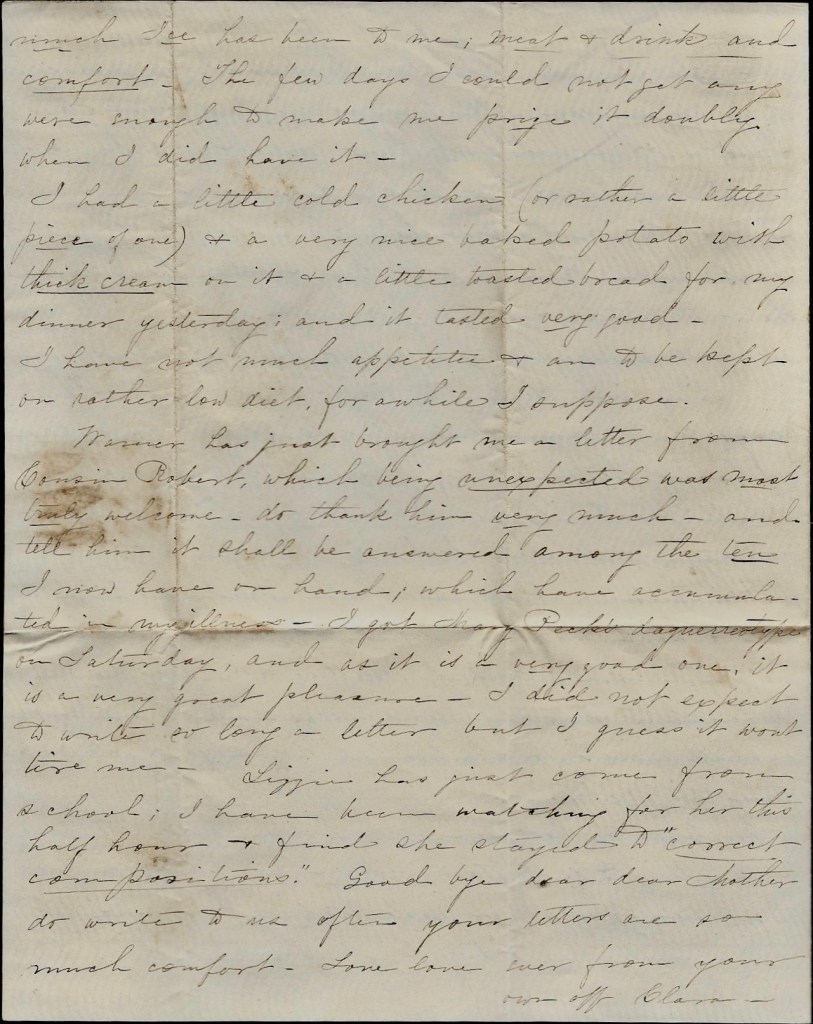 much Ice has been to me; meat & drink and
comfort - The few days I could not get any
were enough to make me prize it doubly
when I did have it -
I had a little cold chicken (or rather a little
piece of one) & a very nice baked potato with
thick cream on it & a little toasted bread for my
dinner yesterday; and it tasted very good -
I have not much appetite & am to be kept
on rather low diet, for awhile I suppose.
Warner has just brought me a letter from
Cousin Robert, which being unexpected was most
truly welcome - do thank him very much - and
tell him it shall be answered among the ten
I now have on hand; which have accumula-
ted in my illness - I got Mary Peck's daguerreotype
on Saturday, and as it is a very good one, it
is a very great pleasure - I did not expect
to write so long a letter but I guess it wont
tire me - Lizzie has just come from
school; I have been watching for her this
half hour & find she stayed to "correct
compositions." Good bye dear dear Mother
do write to us often your letters are so
much comfort - Love love ever from your
own aff Clara -